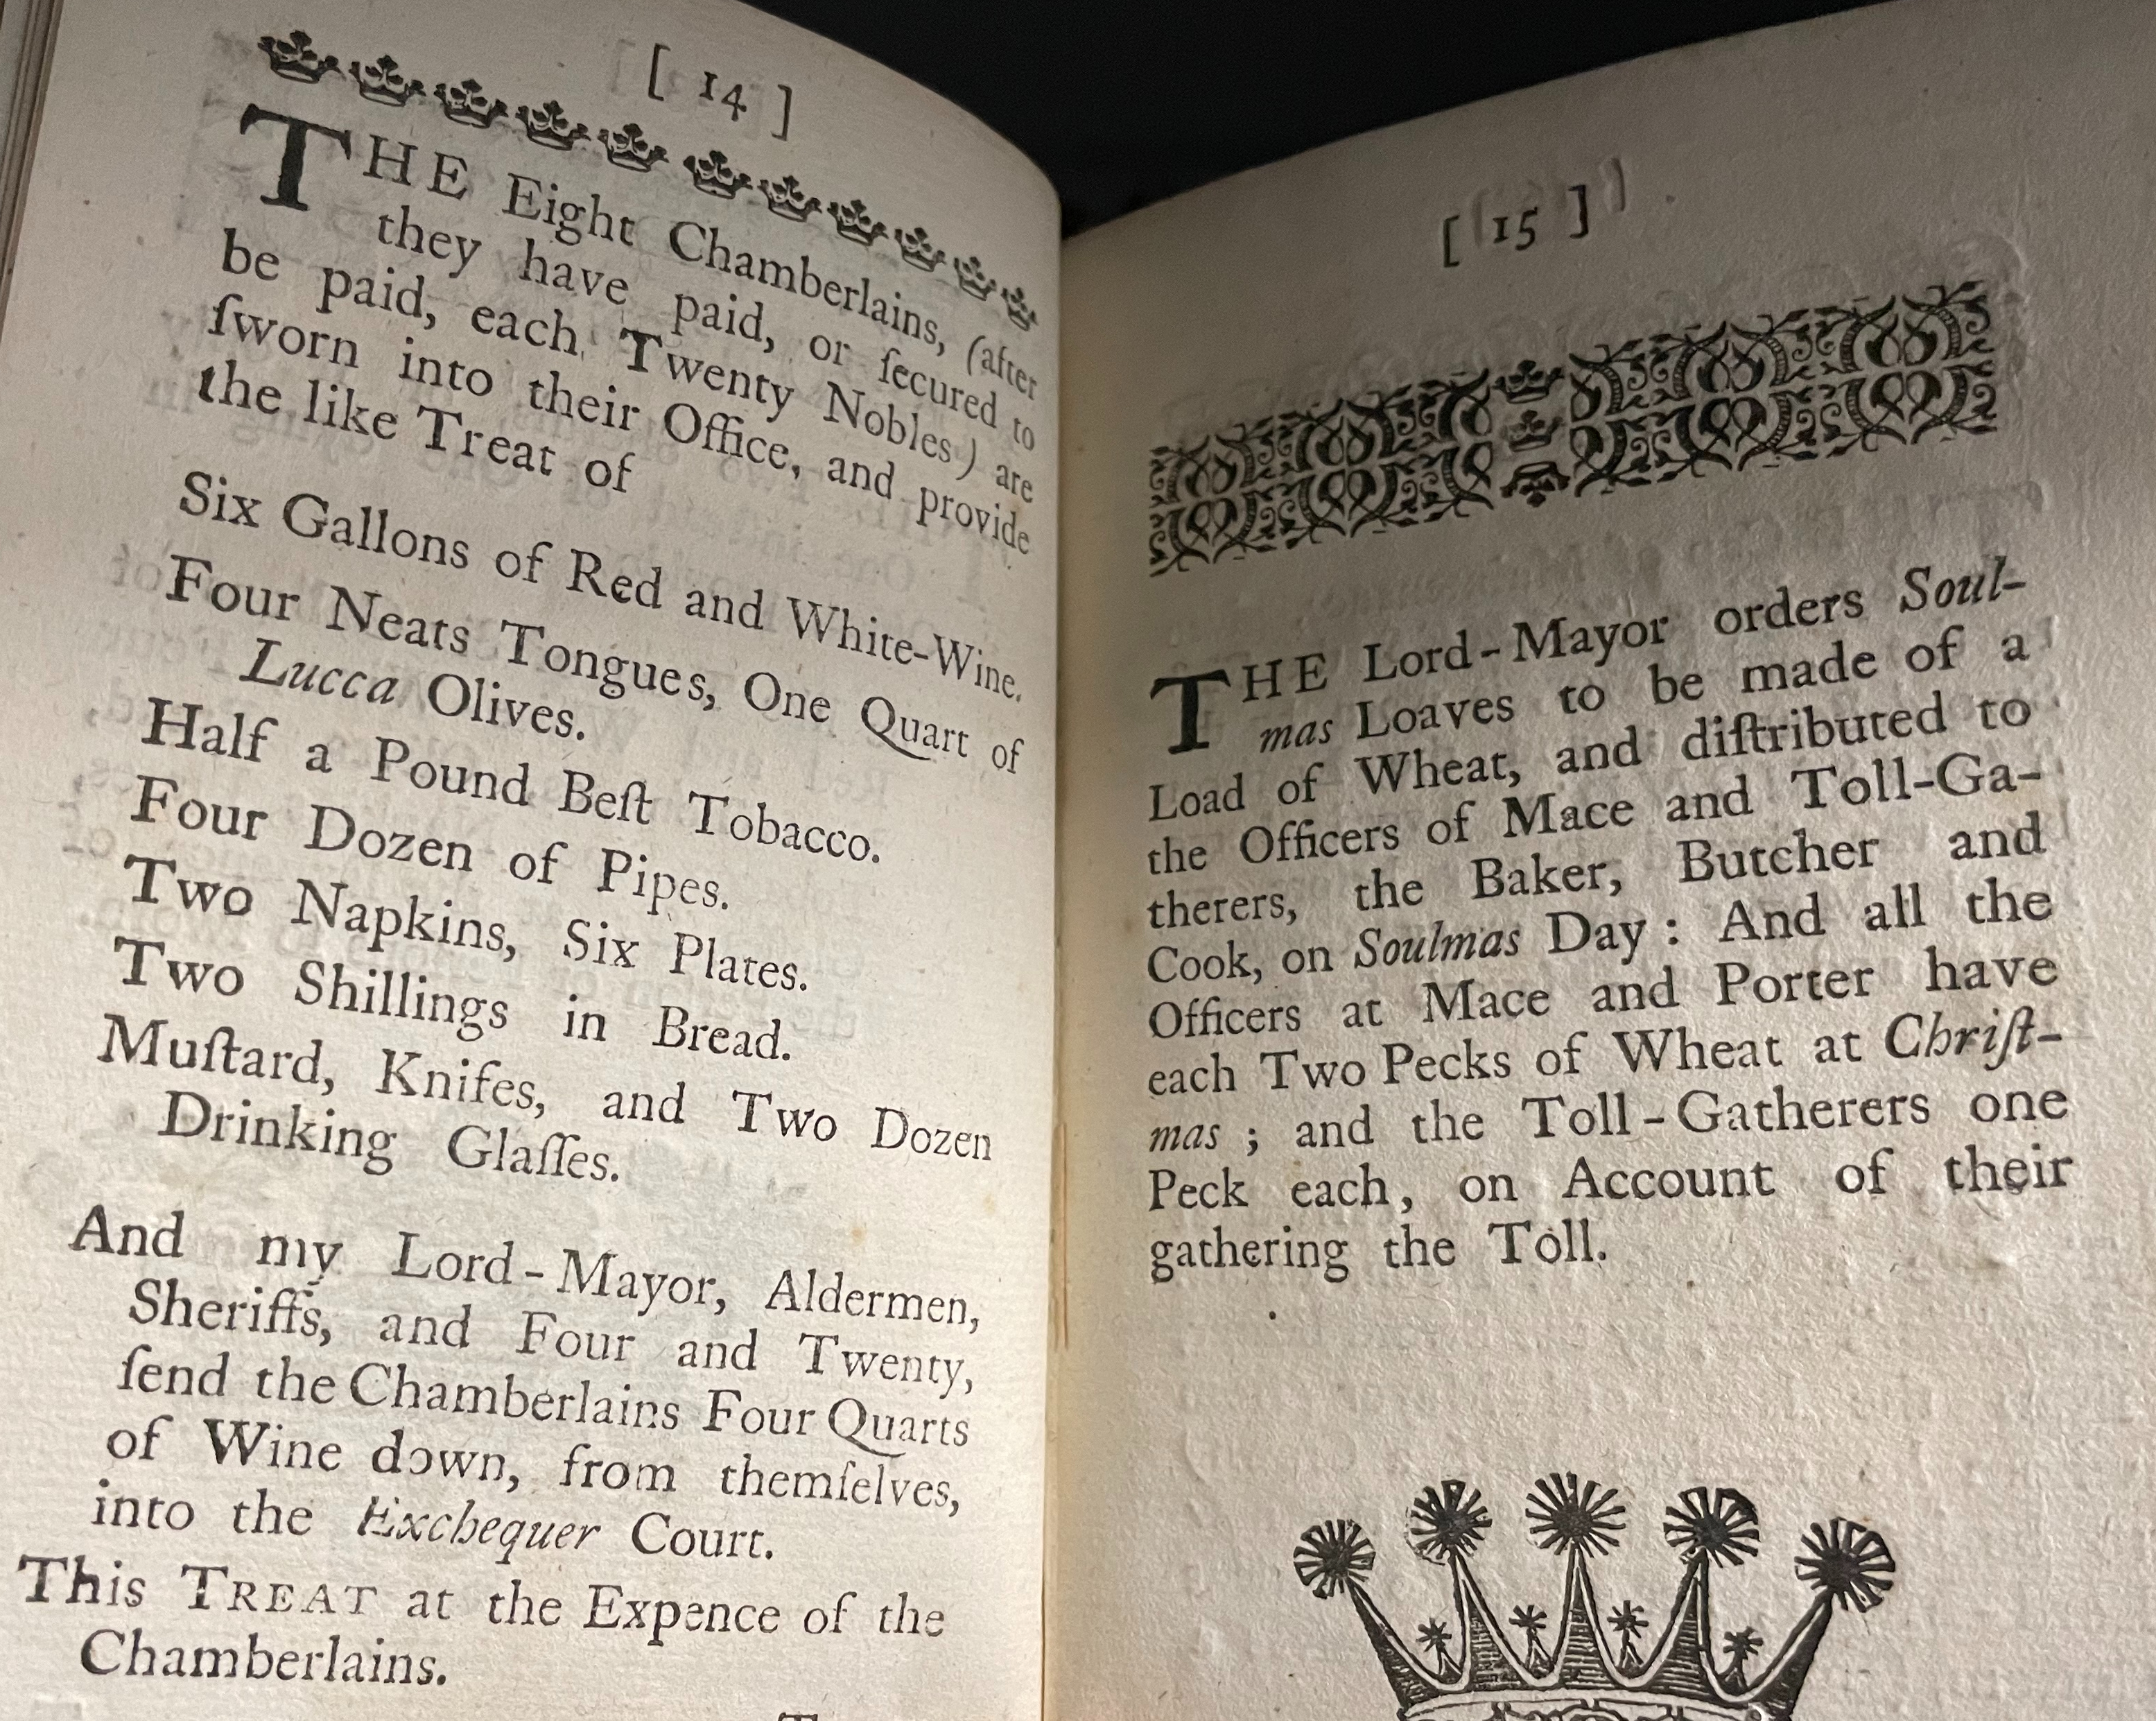 [ 14 ]
THE Eight Chamberlains, (after
they have paid, or ſecured to
be paid, each Twenty Nobles) are
ſworn into their Office, and provide
the like Treat of
Six Gallons of Red and White-Wine.
Four Neats Tongues, One Quart of
Lucca Olives.
Half a Pound Beſt Tobacco.
Four Dozen of Pipes.
Two Napkins, Six Plates.
Two Shillings in Bread.
Muſtard, Knifes, and Two Dozen
Drinking Glaſſes.
And my Lord-Mayor, Aldermen,
Sheriffs, and Four and Twenty,
ſend the Chamberlains Four Quarts
of Wine down, from themſelves,
into the Exchequer Court.
This TREAT at the Expence of the
Chamberlains.
[ 15 ]
THE Lord-Mayor orders Soul-
mas Loaves to be made of a
Load of Wheat, and diſtributed to
the Officers of Mace and Toll-Ga-
therers, the Baker, Butcher and
Cook, on Soulmas Day : And all the
Officers at Mace and Porter have
each Two Pecks of Wheat at Chriſt-
mas ; and the Toll-Gatherers one
Peck each, on Account of their
gathering the Toll.